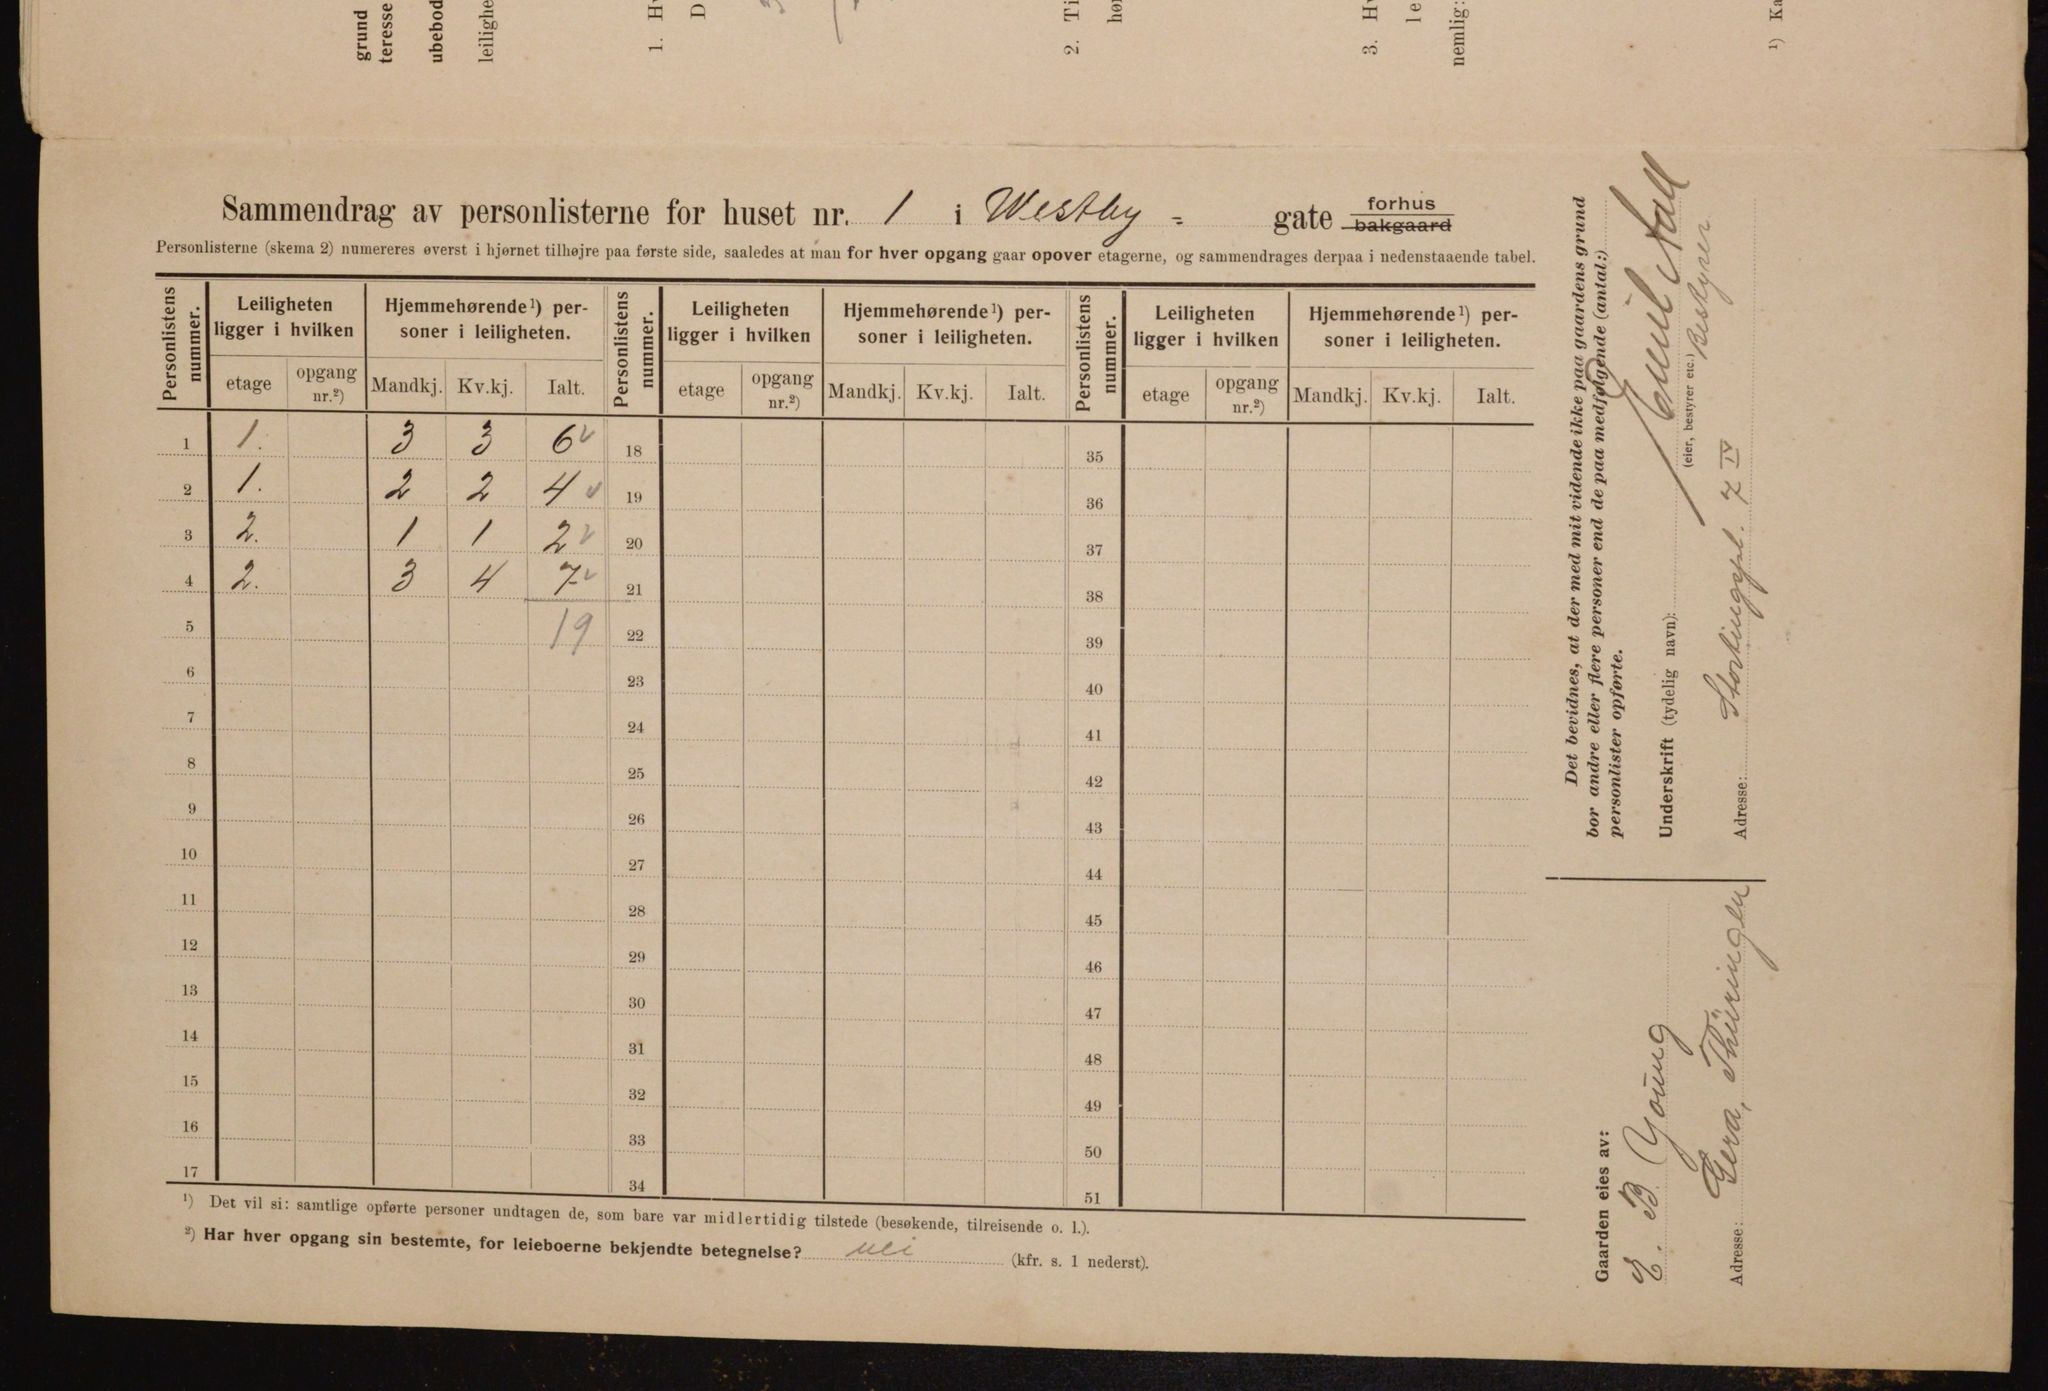 grund
teresse
ubebod
leilighe
1. Hv
D
2. Ti
hør
3. Hv
le
nemlig:
¹) Ka
Sammendrag av personlisterne for huset nr. 1 i Westby = gate forhus
bakgaard
Personlisterne (skema 2) numereres øverst i hjørnet tilhøjre paa første side, saaledes at man for hver opgang gaar opover etagerne, og sammendrages derpaa i nedenstaaende tabel.
Personlistens nummer. Leiligheten ligger i hvilken Hjemmehørende¹) personer i leiligheten. Personlistens nummer. Leiligheten ligger i hvilken Hjemmehørende¹) personer i leiligheten. Personlistens nummer. Leiligheten ligger i hvilken Hjemmehørende¹) personer i leiligheten.
etage opgang nr.²) Mandkj. Kv.kj. Ialt. etage opgang nr.²) Mandkj. Kv.kj. Ialt. etage opgang nr.²) Mandkj. Kv.kj. Ialt.
1 1. 3 3 6 18 35
2 1. 2 2 4 19 36
3 2. 1 1 2 20 37
4 2. 3 4 7 21 38
5 19 22 39
6 23 40
7 24 41
8 25 42
9 26 43
10 27 44
11 28 45
12 29 46
13 30 47
14 31 48
15 32 49
16 33 50
17 34 51
¹) Det vil si: samtlige opførte personer undtagen de, som bare var midlertidig tilstede (besøkende, tilreisende o. l.).
²) Har hver opgang sin bestemte, for leieboerne bekjendte betegnelse? nei (kfr. s. 1 nederst).
Det bevidnes, at der med mit vidende ikke paa gaardens grund
bor andre eller flere personer end de paa medfølgende (antal:)
personlister opførte.
Underskrift (tydelig navn): Emil
(eier, bestyrer etc.) Bestyrer
Adresse: Stortingspl. 7 IV
Gaarden eies av:
E. B. Young
Adresse: Gera, Thüringen